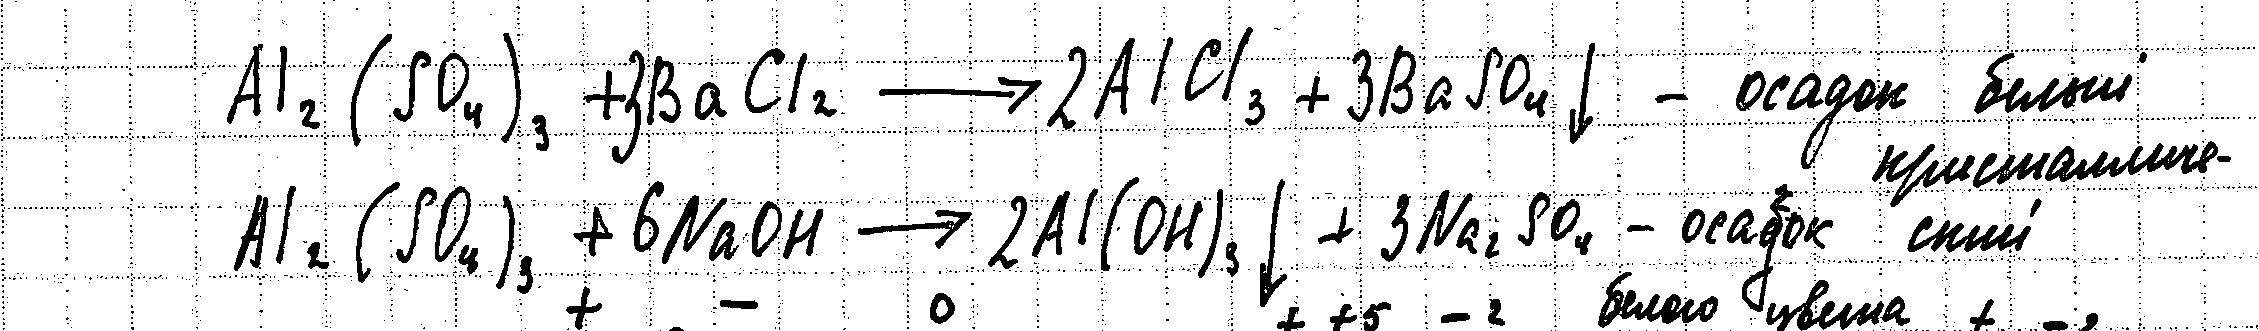 Al₂(SO₄)₃ + 3BaCl₂ → 2AlCl₃ + 3BaSO₄↓ – осадок белый
кристалличе-
Al₂(SO₄)₃ + 6NaOH → 2Al(OH)₃↓ + 3Na₂SO₄ – осадок ский
+ – 0 + +5 –2 белого цвета + –2